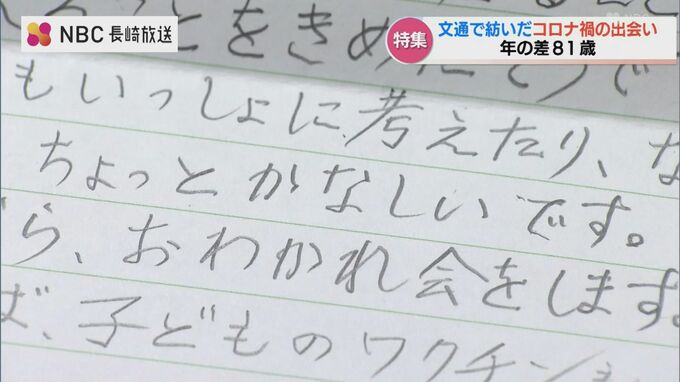 NBC 長崎放送
特集
文通で紡いだコロナ禍の出会い
年の差81歳
とをきめ
もいっしょに考えたり、な
ちょっとかなしいです。
ら、おわかれ会をします。
ば、子どものワクチン